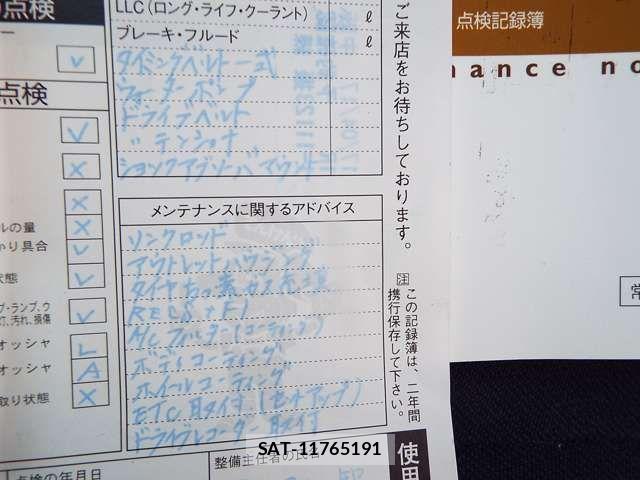 点検
LLC(ロング・ライフ・クーラント) ℓ
ブレーキ・フルード ℓ
タイミングベルト一式
ウォーターポンプ
ドライブベルト
〃 テンショナ
ショックアブソーバマウント
点検
ルの量
かり具合
状態
オッシャ
オッシャ
取り状態
メンテナンスに関するアドバイス
リンクロッド
アウトレットハウジング
タイヤちっ素ガス充填
RECS+F1
A/C フィルター(コーティング)
ボディコーティング
ホイルコーティング
ETC 取付(セットアップ)
ドライブレコーダー取付
点検の年月日
整備主任者の氏名
ご来店をお待ちしております。
注 この記録簿は、二年間
携行保存して下さい。
使用
点検記録簿
nance no
常
SAT-11765191